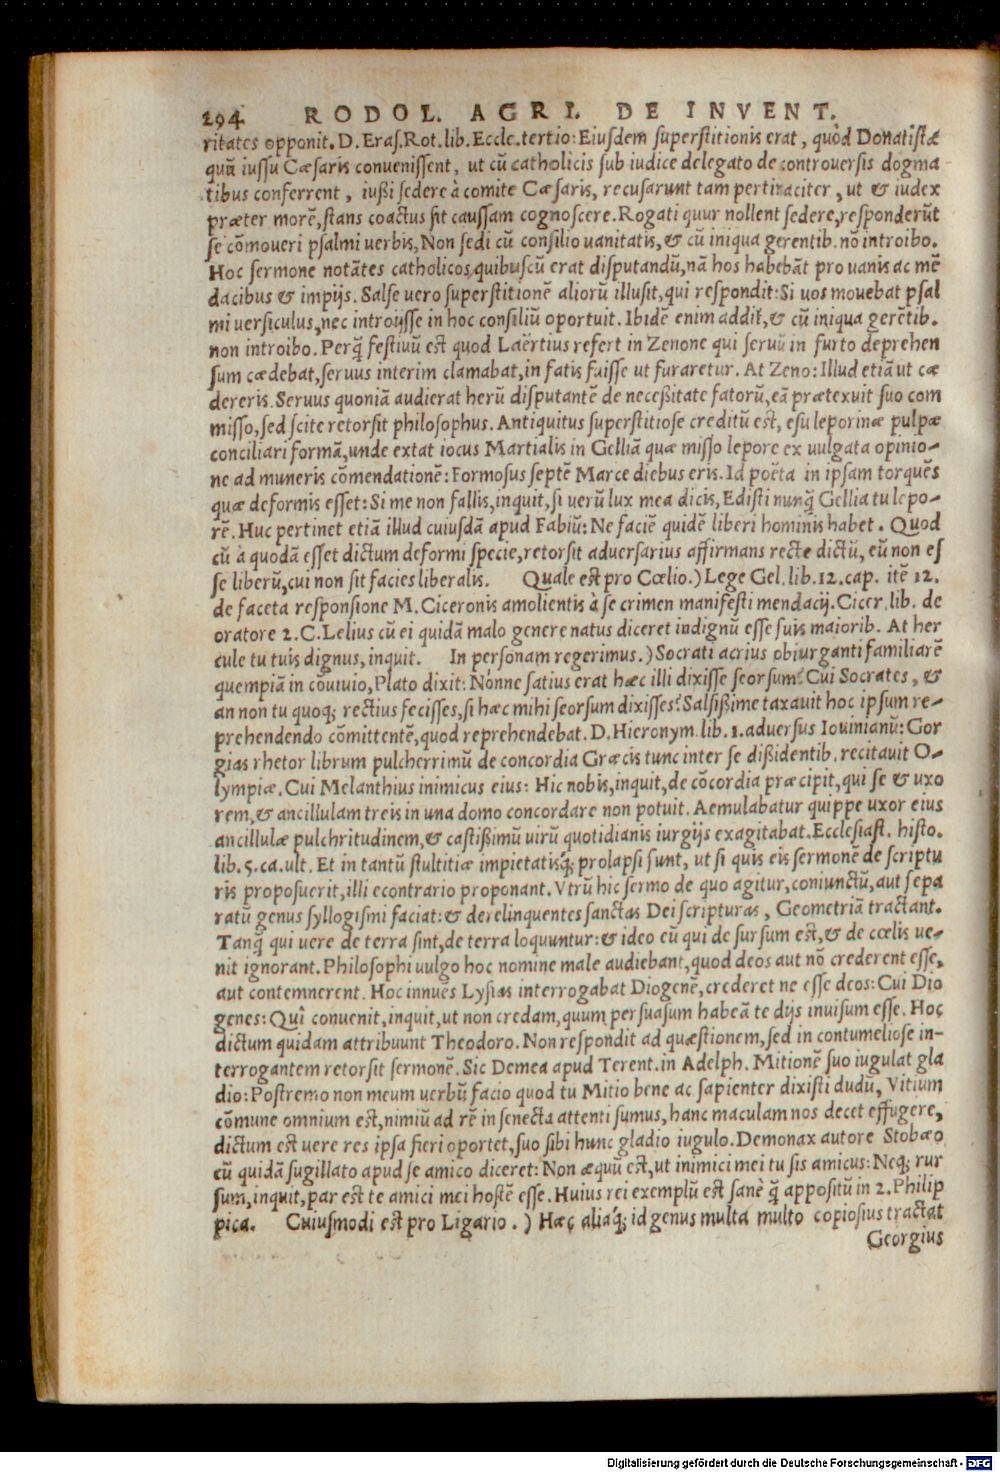 294 RODOL. AGRI. DE INVENT.
ritates opponit. D. Eraſ. Rot. lib. Eccle. tertio: Eiuſdem ſuperſtitionis erat, quòd Donatiſtæ
quũ iuſſu Cæſaris conueniſſent, ut cũ catholicis ſub iudice delegato de controuerſis dogma
tibus conferrent, iußi ſedere à comite Cæſaris, recuſarunt tam pertinaciter, ut & iudex
præter morẽ, ſtans coactus ſit cauſſam cognoſcere. Rogati quur nollent ſedere, reſponderũt
ſe cõmoueri pſalmi uerbis, Non ſedi cũ conſilio uanitatis, & cũ iniqua gerentib. nõ introibo.
Hoc ſermone notãtes catholicos, quibuſcũ erat diſputandũ, nã hos habebãt pro uanis ac mẽ
dacibus & impijs. Salſe uero ſuperſtitionẽ aliorũ illuſit, qui reſpondit: Si uos mouebat pſal
mi uerſiculus, nec introijſſe in hoc conſiliũ oportuit. Ibidẽ enim addit̃, & cũ iniqua gerẽtib.
non introibo. Perq̃ feſtiuũ eſt quod Laërtius refert in Zenone qui ſeruũ in furto deprehen
ſum cædebat, ſeruus interim clamabat, in fatis fuiſſe ut furaretur. At Zeno: Illud etiã ut cæ
dereris. Seruus quoniã audierat herũ diſputantẽ de neceßitate fatorũ, eã prætexuit ſuo com
miſſo, ſed ſcite retorſit philoſophus. Antiquitus ſuperſtitioſe creditũ eſt, eſu leporinæ pulpæ
conciliari formã, unde extat iocus Martialis in Gelliã quæ miſſo lepore ex uulgata opinio-
ne ad muneris cõmendationẽ: Formoſus ſeptẽ Marce diebus eris. Id poëta in ipſam torquẽs
quæ deformis eſſet: Si me non fallis, inquit, ſi uerũ lux mea dicis, Ediſti nunq̃ Gellia tu lepo-
rẽ. Huc pertinet etiã illud cuiuſdã apud Fabiũ: Ne faciẽ quidẽ liberi hominis habet. Quod
cũ à quodã eſſet dictum deformi ſpecie, retorſit aduerſarius affirmans recte dictũ, eũ non eſ
ſe liberũ, cui non ſit facies liberalis. Quale eſt pro Cœlio.) Lege Gel. lib. 12. cap. itẽ 12.
de faceta reſponſione M. Ciceronis amolientis à ſe crimen manifeſti mendacij. Cicer. lib. de
oratore 2. C. Lelius cũ ei quidã malo genere natus diceret indignũ eſſe ſuis maiorib. At her
cule tu tuis dignus, inquit. In perſonam regerimus.) Socrati acrius obiurganti familiarẽ
quempiã in cõuiuio, Plato dixit: Nónne ſatius erat hæc illi dixiſſe ſeorſum? Cui Socrates, &
an non tu quoq; rectius feciſſes, ſi hæc mihi ſeorſum dixiſſes? Salſißime taxauit hoc ipſum re-
prehendendo cõmittentẽ, quod reprehendebat. D. Hieronym. lib. 1. aduerſus Iouinianũ: Gor
gias rhetor librum pulcherrimũ de concordia Græcis tunc inter ſe dißidentib. recitauit O-
lympiæ. Cui Melanthius inimicus eius: Hic nobis, inquit, de cõcordia præcipit, qui ſe & uxo
rem, & ancillulam treis in una domo concordare non potuit. Aemulabatur quippe uxor eius
ancillulæ pulchritudinem, & caſtißimũ uirũ quotidianis iurgijs exagitabat. Eccleſiaſt. hiſto.
lib. 5. ca. ult. Et in tantũ ſtultitiæ impietatisq́; prolapſi ſunt, ut ſi quis eis ſermonẽ de ſcriptu
ris propoſuerit, illi econtrario proponant. Vtrũ hic ſermo de quo agitur, coniunctũ, aut ſepa
ratũ genus ſyllogiſmi faciat: & derelinquentes ſanctas Dei ſcripturas, Geometriã tractant.
Tanq̃ qui uere de terra ſint, de terra loquuntur: & ideo eũ qui de ſurſum eſt, & de cœlis ue-
nit ignorant. Philoſophi uulgo hoc nomine male audiebant, quod deos aut nõ crederent eſſe,
aut contemnerent. Hoc innuẽs Lyſias interrogabat Diogenẽ, crederet ne eſſe deos: Cui Dio
genes: Quî conuenit, inquit, ut non credam, quum perſuaſum habeã te dijs inuiſum eſſe. Hoc
dictum quidam attribuunt Theodoro. Non reſpondit ad quæſtionem, ſed in contumelioſe in-
terrogantem retorſit ſermonẽ. Sic Demea apud Terent. in Adelph. Mitionẽ ſuo iugulat gla
dio: Poſtremo non meum uerbũ facio quod tu Mitio bene ac ſapienter dixiſti dudũ, Vitium
cõmune omnium eſt, nimiũ ad rẽ in ſenecta attenti ſumus, hanc maculam nos decet effugere,
dictum eſt uere res ipſa fieri oportet, ſuo ſibi hunc gladio iugulo. Demonax autore Stobæo
cũ quidã ſugillato apud ſe amico diceret: Non æquũ eſt, ut inimici mei tu ſis amicus: Neq; rur
ſum, inquit, par eſt te amici mei hoſtẽ eſſe. Huius rei exemplũ eſt ſanè q̃ appoſitũ in 2. Philip
pica. Cuiuſmodi eſt pro Ligario.) Hæc aliaq́; id genus multa multo copioſius tractat
Georgius
Digitalisierung gefördert durch die Deutsche Forschungsgemeinschaft - DFG